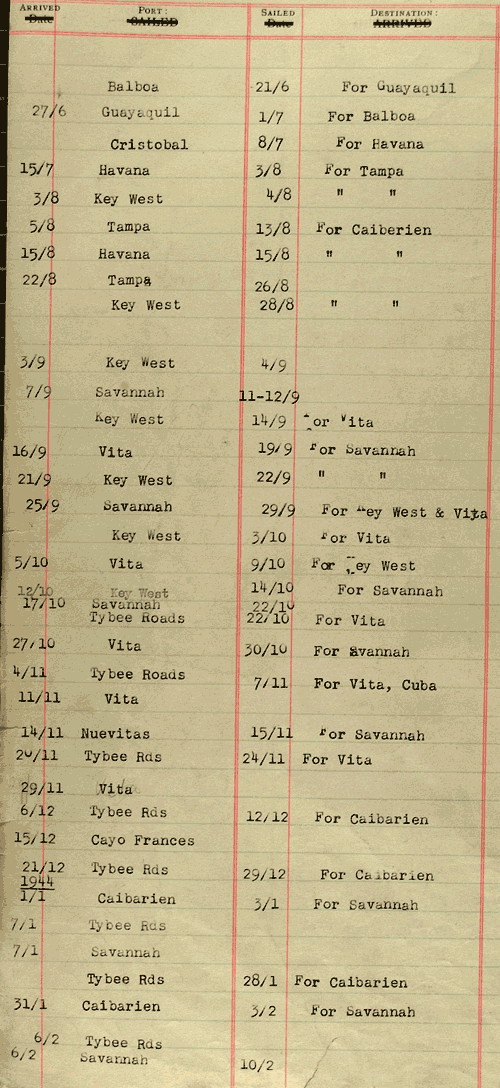 ARRIVED PORT: SAILED DESTINATION:
Date SAILED Date ARRIVED
Balboa 21/6 For Guayaquil
27/6 Guayaquil 1/7 For Balboa
Cristobal 8/7 For Havana
15/7 Havana 3/8 For Tampa
3/8 Key West 4/8 " "
5/8 Tampa 13/8 For Caiberien
15/8 Havana 15/8 " "
22/8 Tampa 26/8
Key West 28/8 " "
3/9 Key West 4/9
7/9 Savannah 11-12/9
Key West 14/9 For Vita
16/9 Vita 19/9 For Savannah
21/9 Key West 22/9 " "
25/9 Savannah 29/9 For Key West & Vita
Key West 3/10 For Vita
5/10 Vita 9/10 For Key West
12/10 Key West 14/10 For Savannah
17/10 Savannah 22/10
Tybee Roads 22/10 For Vita
27/10 Vita 30/10 For Savannah
4/11 Tybee Roads 7/11 For Vita, Cuba
11/11 Vita
14/11 Nuevitas 15/11 For Savannah
20/11 Tybee Rds 24/11 For Vita
29/11 Vita
6/12 Tybee Rds 12/12 For Caibarien
15/12 Cayo Frances
21/12 Tybee Rds 29/12 For Caibarien
1944
1/1 Caibarien 3/1 For Savannah
7/1 Tybee Rds
7/1 Savannah
Tybee Rds 28/1 For Caibarien
31/1 Caibarien 3/2 For Savannah
6/2 Tybee Rds
6/2 Savannah 10/2